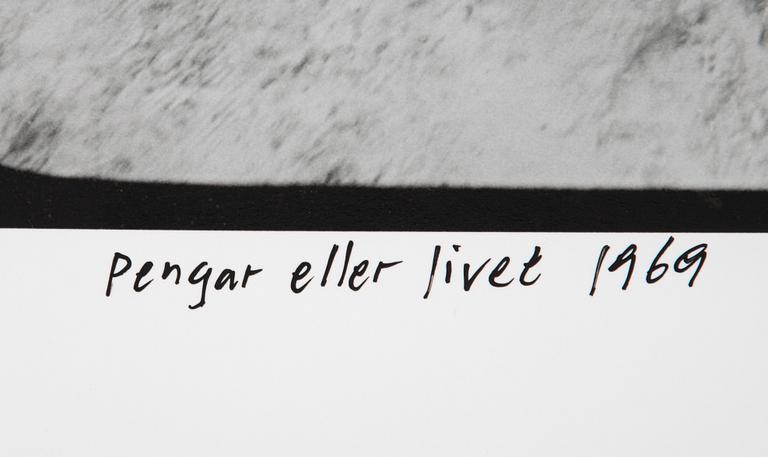 Pengar eller livet 1969